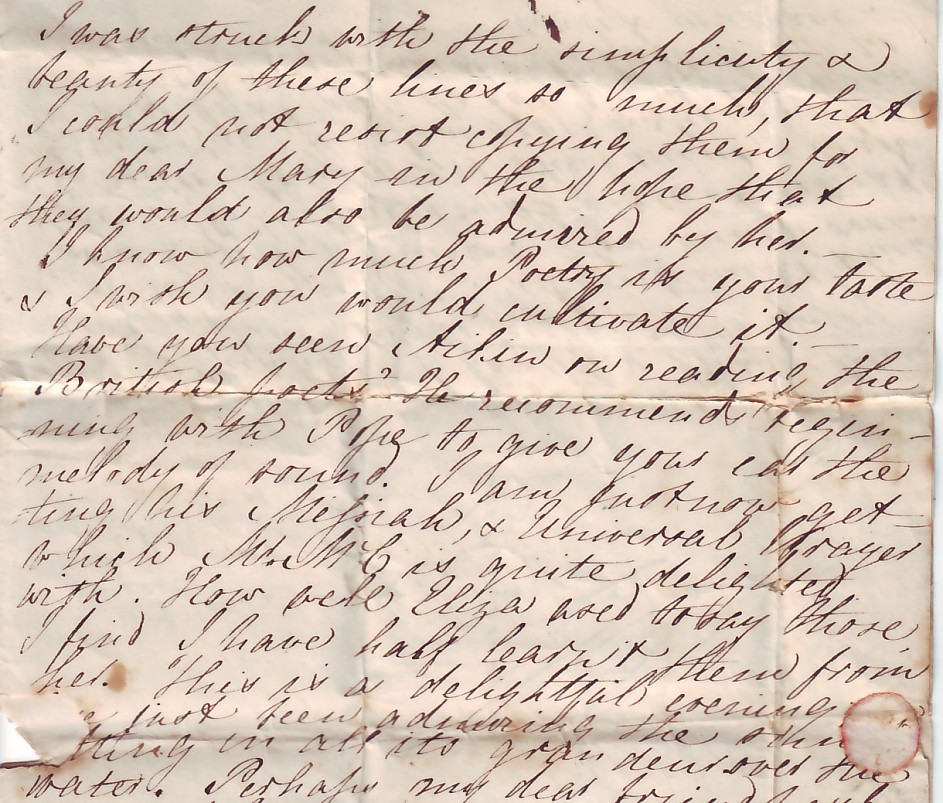 I was struck with the simplicity &
beauty of these lines so much, that
I could not resist copying them for
my dear Mary in the hope that
they would also be admired by her.
I know how much Poetry is your taste
& I wish you would cultivate it. –
Have you seen Aikin on reading the
British poets? He recommends begin-
ning with Pope to give your ear the
melody of sound. I am just now get-
ting his Messiah, & Universal Prayer
which Mr. McC is quite delighted
with. How well Eliza used to say those
I find I have half learnt them from
her. This is a delightful evening
just been admiring the sun
in all its grandeur over the
water. Perhaps my dear friend